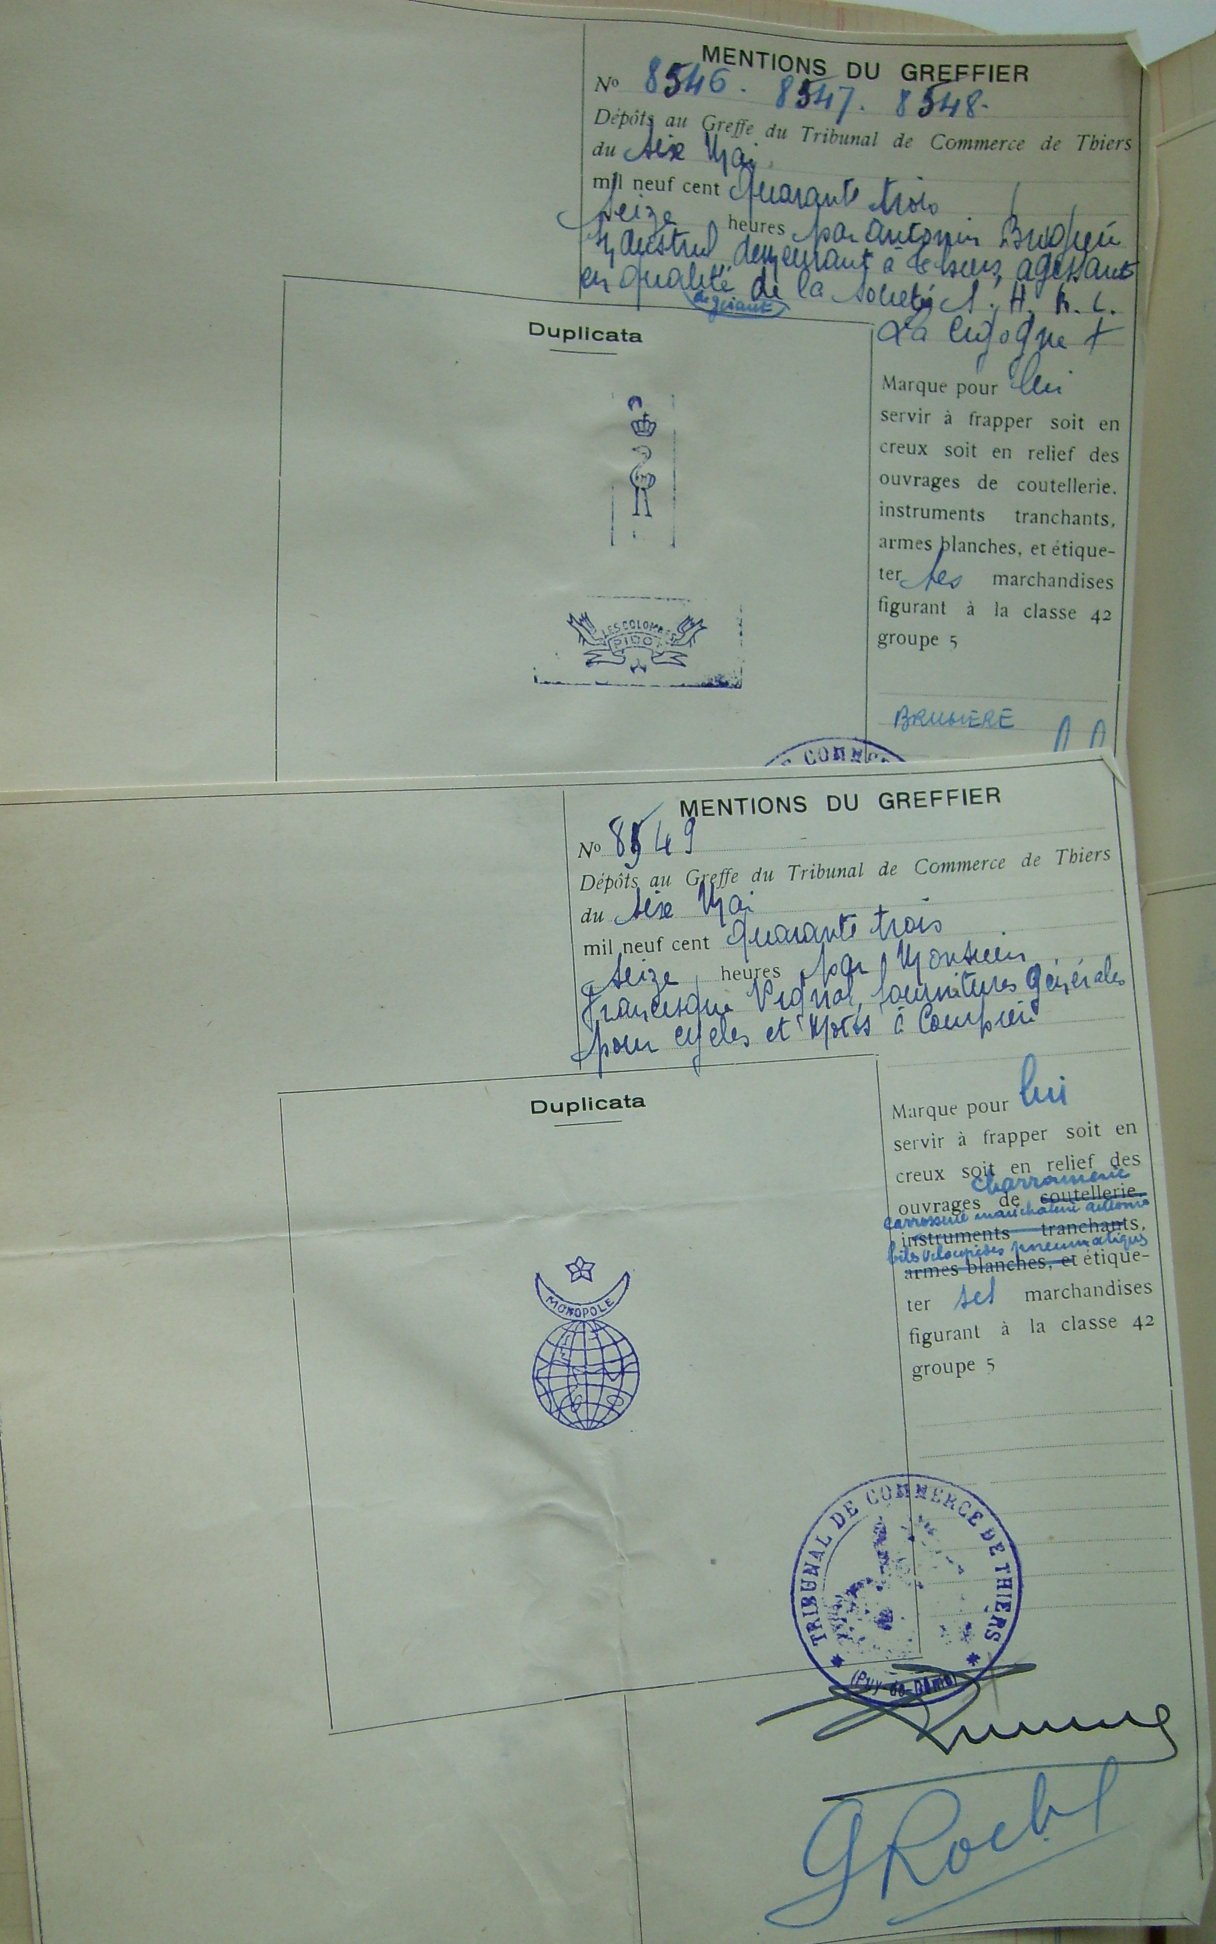 MENTIONS DU GREFFIER
No 8546. 8547. 8548.
Dépôts au Greffe du Tribunal de Commerce de Thiers
du six Mai
mil neuf cent quarante trois
seize heures par Antonin
Industriel demeurant à agissant
en qualité de la Société S. A. R. L.
de gérant
La Cigogne +
Duplicata
Marque pour lui
servir à frapper soit en
creux soit en relief des
ouvrages de coutellerie.
instruments tranchants,
armes blanches, et étique-
ter ses marchandises
figurant à la classe 42
groupe 5
LES COLOMBES
PIDOT
BRUGIERE
DE COMMERCE
MENTIONS DU GREFFIER
No 8549
Dépôts au Greffe du Tribunal de Commerce de Thiers
du six Mai
mil neuf cent quarante trois
seize heures par Monsieur
Francisque Vignal, fournitures générales
pour cycles et Motos à
Duplicata
Marque pour lui
servir à frapper soit en
creux soit en relief des
charronnerie
ouvrages de coutellerie.
carrosserie maréchalerie automo
instruments tranchants,
biles vélocipèdes pneumatiques
armes blanches, et étique-
ter ses marchandises
figurant à la classe 42
groupe 5
MONOPOLE
TRIBUNAL DE COMMERCE DE THIERS
(Puy-de-Dôme)